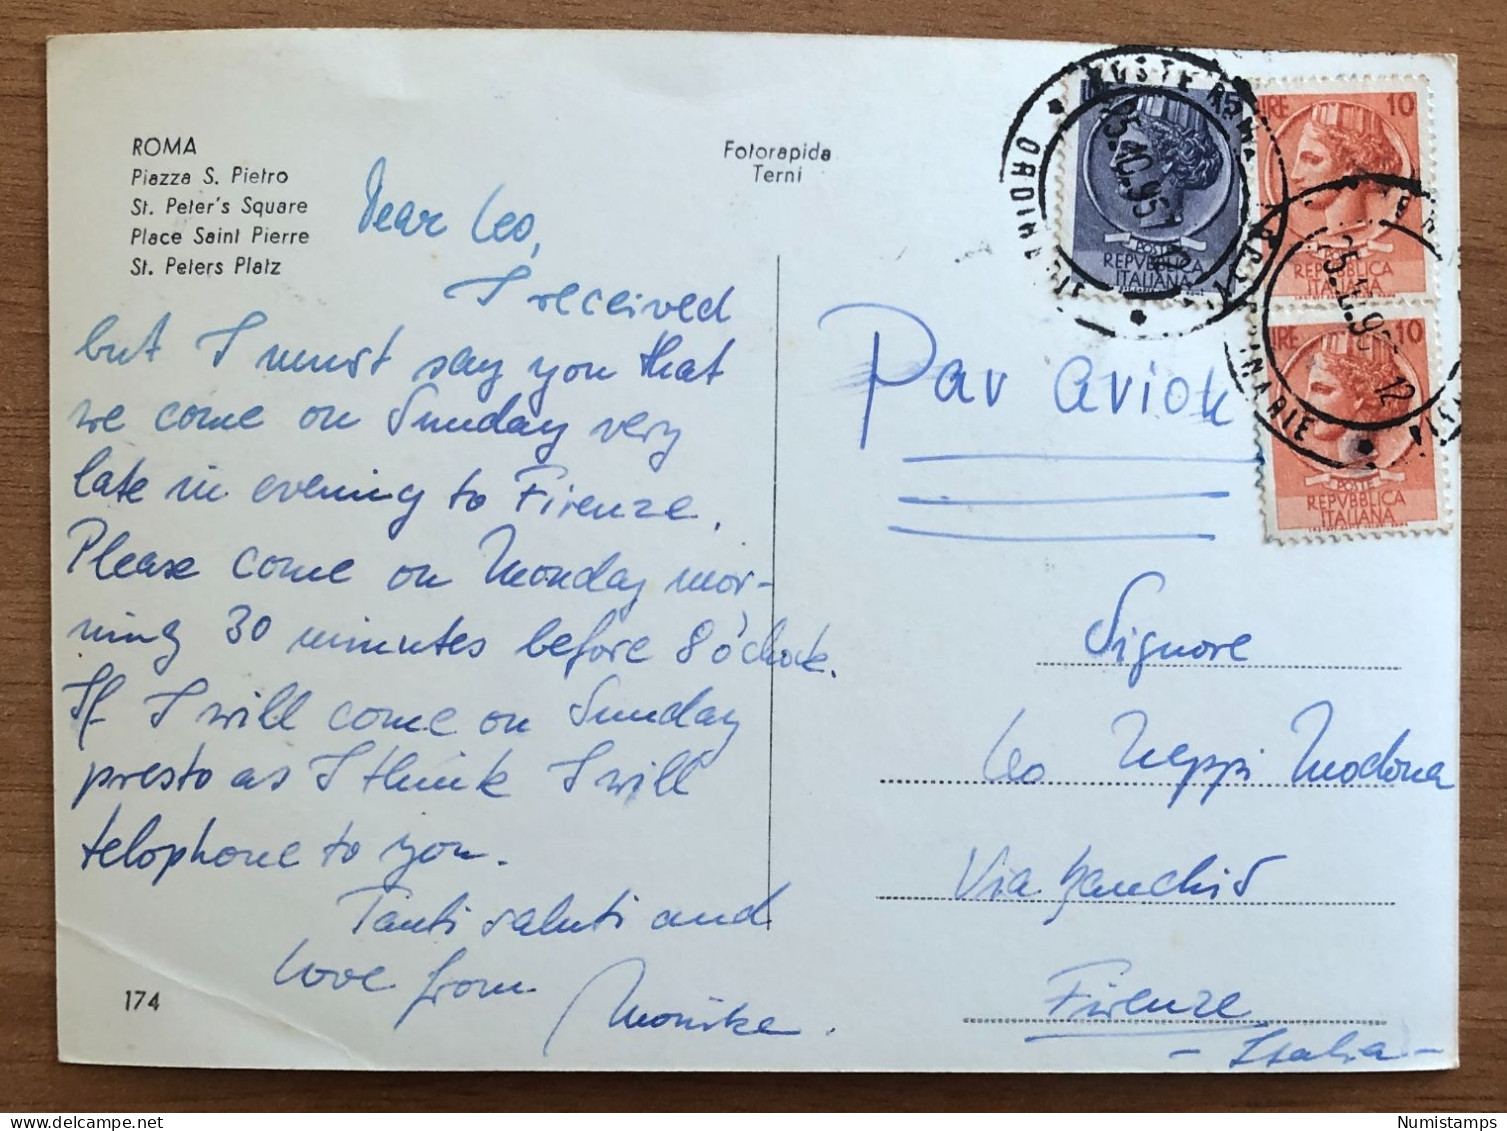 ROMA
Piazza S. Pietro
St. Peter's Square
Place Saint Pierre
St. Peters Platz
Fotorapida
Terni
Dear Leo,
I received
but I must say you that
we come on Sunday very
late in evening to Firenze.
Please come on Monday mor-
ning 30 minutes before 8 o'clock.
If I will come on Sunday
presto as I think I will
telophone to you.
Tanti saluti and
love from
Monika.
174
LIRE 10
REPVBBLICA
ITALIANA
LIRE 10
POSTE
REPVBBLICA
ITALIANA
POSTE
REPVBBLICA
ITALIANA
Par avion
Signore
Leo Neppi Modona
Via
Firenze
- Italia -
Numistamps